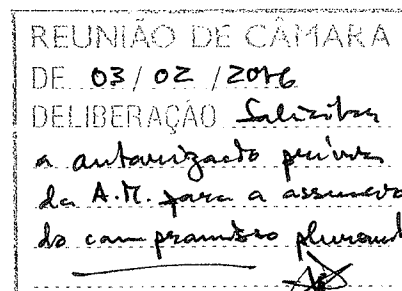 REUNIÃO DE CÂMARA
DE 03/02/2016
DELIBERAÇÃO Solicitar
a autorização prévia
da A.M. para a assunção
do compromisso plurianual